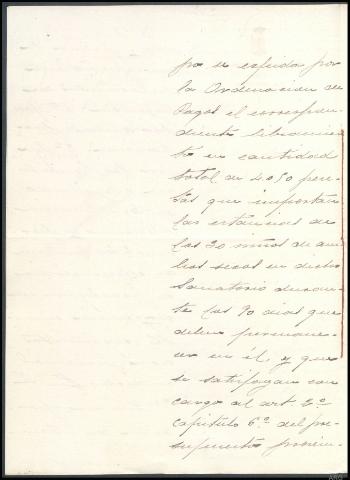 po se expida por
la Ordenacion de
Pagos el correspon-
diente libramien-
to en cantidad
total de 4050 pese-
tas que importan
las estancias de
los 30 niños de am-
bos sexos en dicho
Sanatorio duran-
te los 90 dias que
deben permane-
cer en él, y que
se satisfagan con
cargo al art. 2º
capitulo 6º del pre-
supuesto provin-